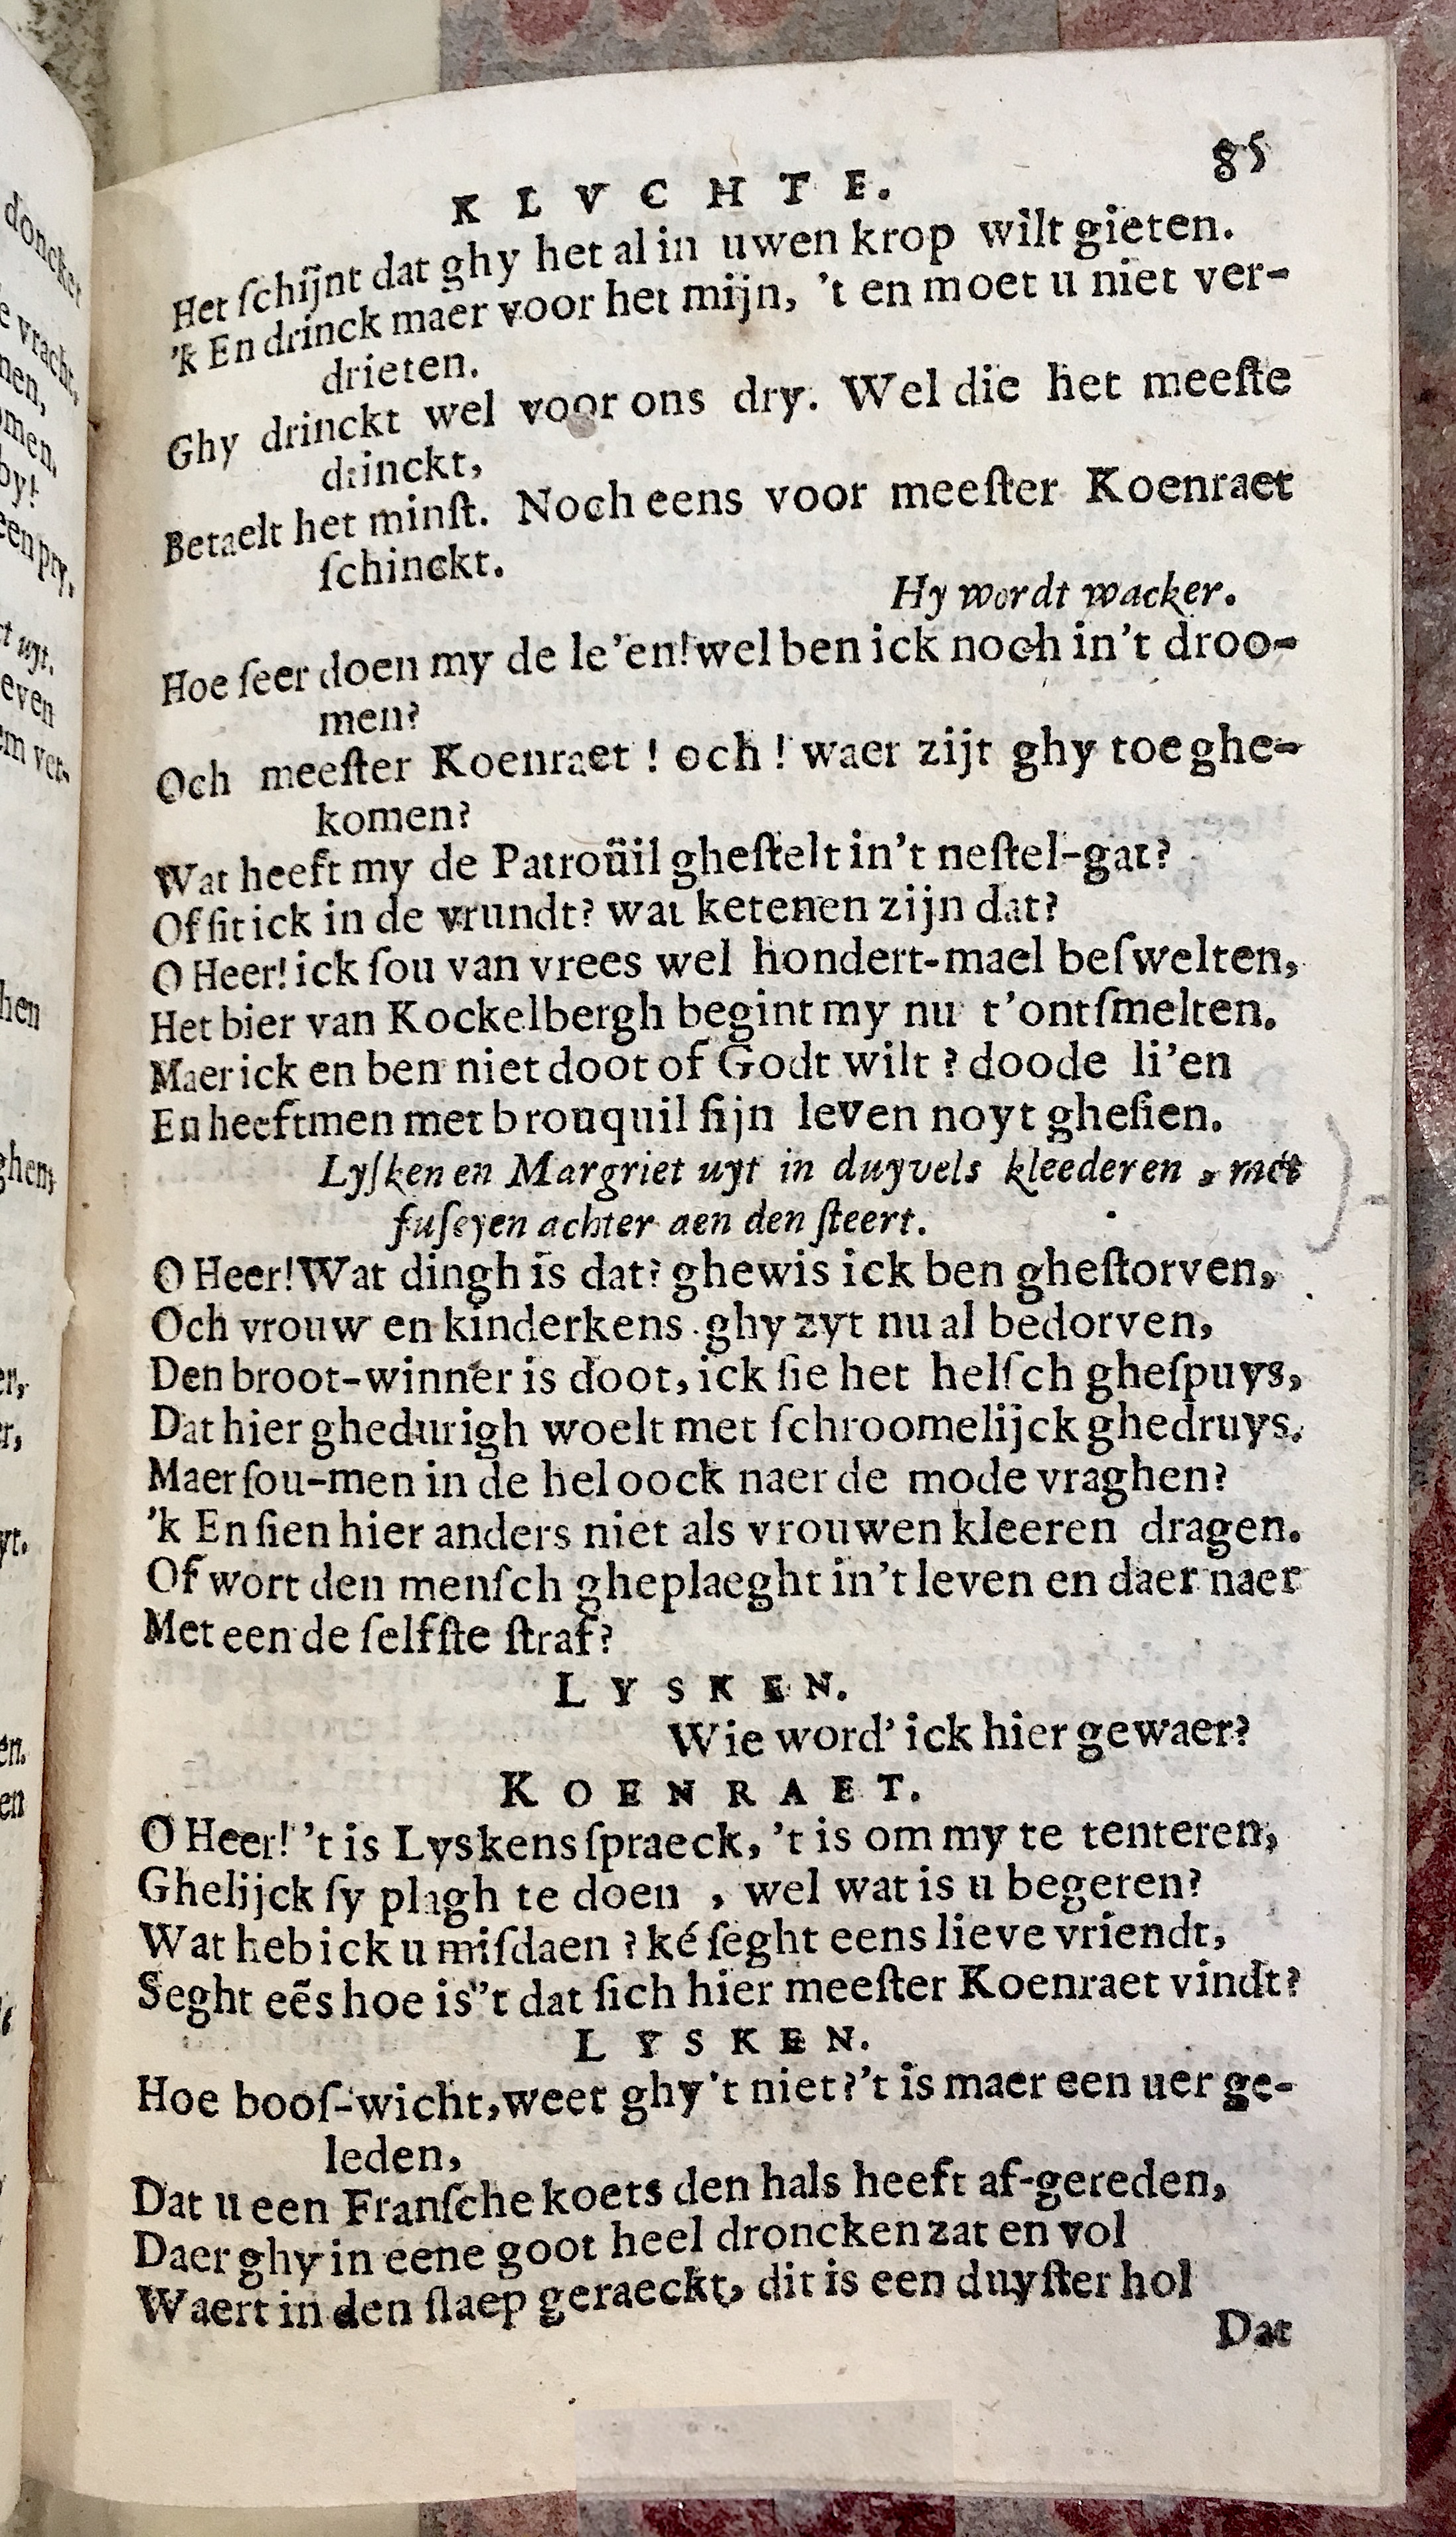 85
KLVCHTE.
Het ſchijnt dat ghy het al in uwen krop wilt gieten.
'k En drinck maer voor het mijn, 't en moet u niet ver-
drieten.
Ghy drinckt wel voor ons dry. Wel die het meeſte
drinckt,
Betaelt het minſt. Noch eens voor meeſter Koenraet
ſchinckt.
Hy wordt wacker.
Hoe ſeer doen my de le'en! wel ben ick noch in't droo-
men?
Och meeſter Koenraet! och! waer zijt ghy toeghe-
komen?
Wat heeft my de Patroüil gheſtelt in't neſtel-gat?
Of ſit ick in de vrundt? wat ketenen zijn dat?
O Heer! ick ſou van vrees wel hondert-mael beſwelten,
Het bier van Kockelbergh begint my nu t'ontſmelten.
Maer ick en ben niet doot of Godt wilt? doode li'en
En heeftmen met brouquil ſijn leven noyt gheſien.
Lyſken en Margriet uyt in duyvels kleederen, met
fuſeyen achter aen den ſteert.
O Heer! Wat dingh is dat? ghewis ick ben gheſtorven,
Och vrouw en kinderkens ghy zyt nu al bedorven,
Den broot-winner is doot, ick ſie het helſch gheſpuys,
Dat hier ghedurigh woelt met ſchroomelijck ghedruys.
Maer ſou-men in de hel oock naer de mode vraghen?
'k En ſien hier anders niet als vrouwen kleeren dragen.
Of wort den menſch gheplaeght in't leven en daer naer
Met een de ſelfſte ſtraf?
LYSKEN.
Wie word' ick hier gewaer?
KOENRAET.
O Heer! 't is Lyskens ſpraeck, 't is om my te tenteren,
Ghelijck ſy plagh te doen, wel wat is u begeren?
Wat heb ick u miſdaen? ké ſeght eens lieve vriendt,
Seght eẽs hoe is''t dat ſich hier meeſter Koenraet vindt?
LYSKEN.
Hoe booſ-wicht, weet ghy 't niet? 't is maer een uer ge-
leden,
Dat u een Franſche koets den hals heeft af-gereden,
Daer ghy in eene goot heel droncken zat en vol
Waert in den ſlaep geraeckt, dit is een duyſter hol
Dat